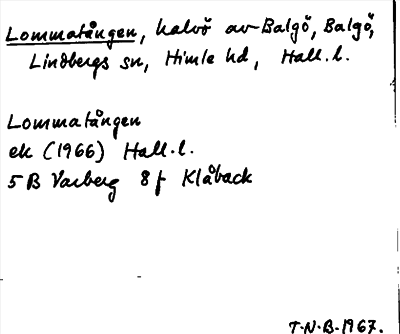 Lommatången, halvö av Balgö, Balgö,
Lindbergs sn, Himle hd, Hall.l.
Lommatången
ek (1966) Hall.l.
5B Varberg 8f Klåback
T.N.B. 1967.